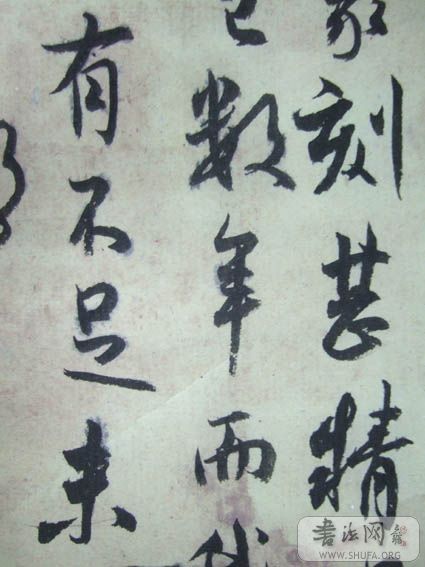 刻甚精
已数年而
有不足未
书法网
WWW.SHUFA.ORG